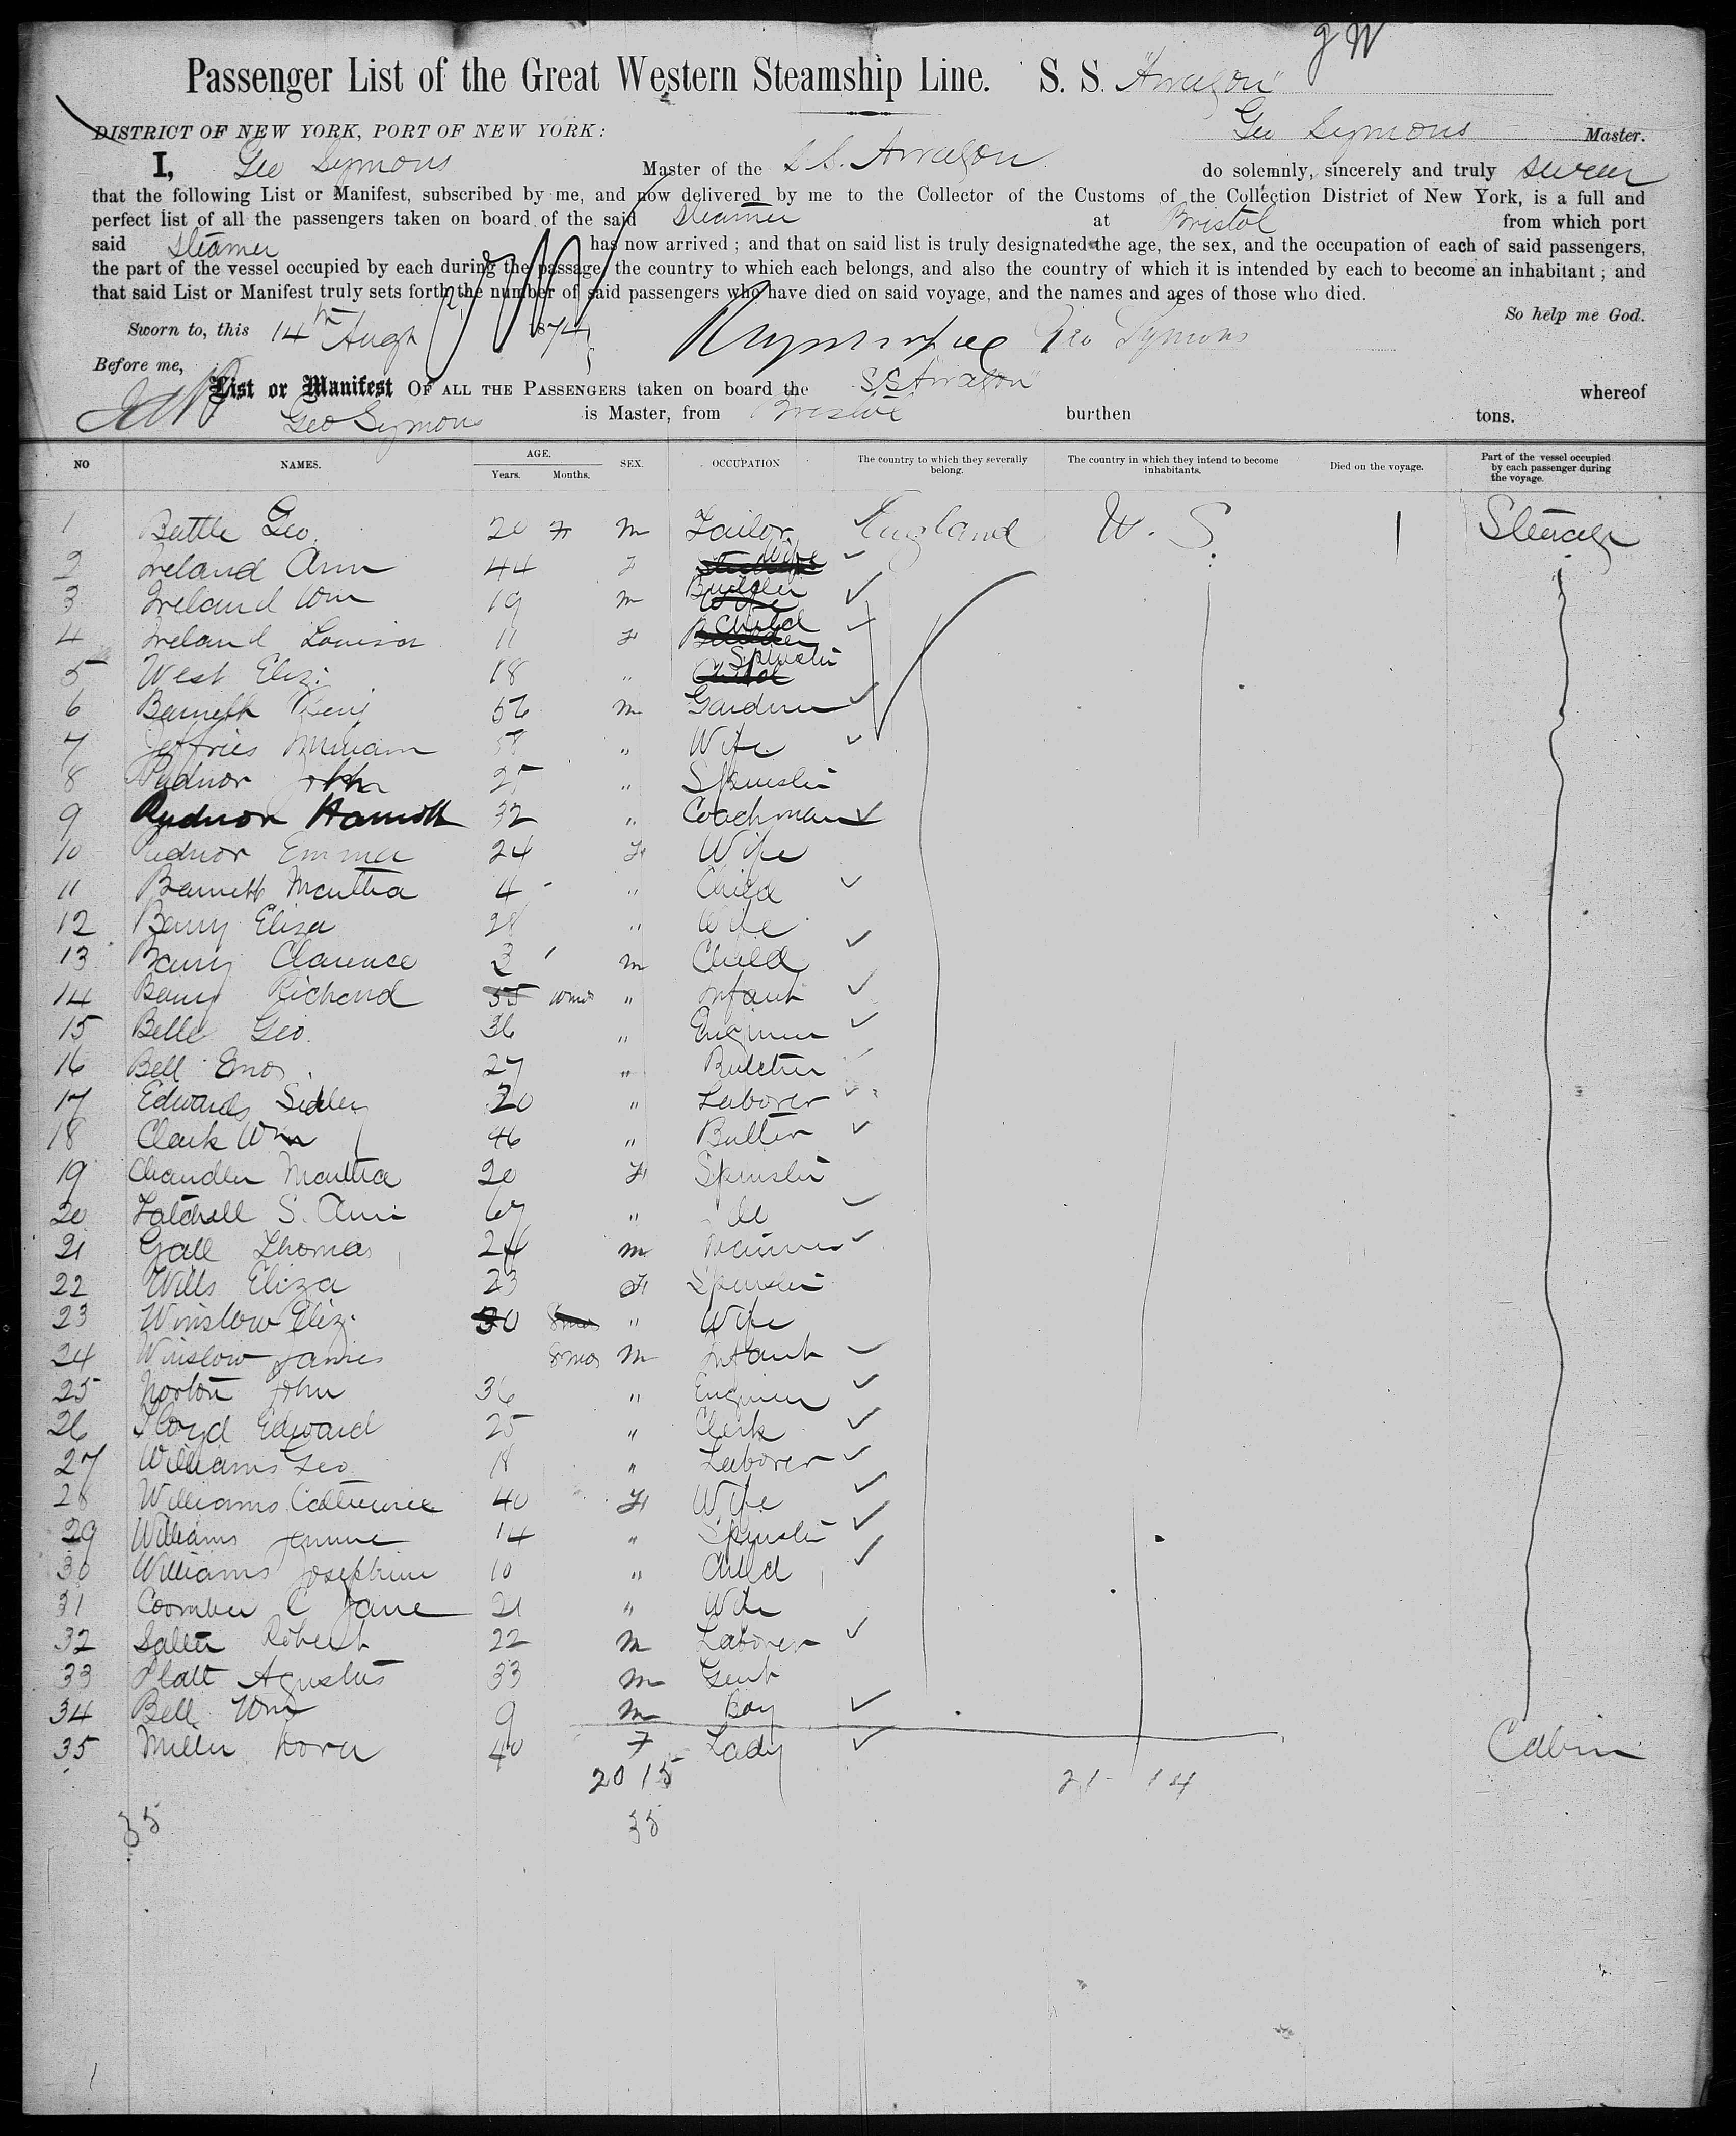 g W
Passenger List of the Great Western Steamship Line. S. S. "Arragon"
DISTRICT OF NEW YORK, PORT OF NEW YORK: Geo Symons Master.
I, Geo Symons Master of the S.S. Arragon do solemnly, sincerely and truly swear
that the following List or Manifest, subscribed by me, and now delivered by me to the Collector of the Customs of the Collection District of New York, is a full and
perfect list of all the passengers taken on board of the said Steamer at Bristol from which port
said Steamer has now arrived; and that on said list is truly designated the age, the sex, and the occupation of each of said passengers,
the part of the vessel occupied by each during the passage, the country to which each belongs, and also the country of which it is intended by each to become an inhabitant; and
that said List or Manifest truly sets forth the number of said passengers who have died on said voyage, and the names and ages of those who died.
So help me God.
Sworn to, this 14th Augt 1874 Geo Symons
Before me,
List or Manifest OF ALL THE PASSENGERS taken on board the S/S Arragon" whereof
Geo Symons is Master, from Bristol burthen tons.
NO NAMES. AGE. Years. Months. SEX. OCCUPATION The country to which they severally belong. The country in which they intend to become inhabitants. Died on the voyage. Part of the vessel occupied by each passenger during the voyage.
1 Battle Geo. 20 m Tailor England U. S. 1 Steerage
2 Ireland Ann 44 F Wife
3 Ireland Wm 19 m Builder
4 Ireland Louisa 11 F Child
5 West Eliz. 18 " Spinster
6 Barnett Benj 56 m Gardner
7 Jeffries Miriam 58 " Wife
8 Rudnor John 25 " Spinster
9 Rudnor 32 " Coachman
10 Rudnor Emma 24 F Wife
11 Barnett Martha 4 " Child
12 Barry Eliza 28 " Wife
13 Barry Clarence 3 m Child
14 Barry Richard 10 mos " Infant
15 Bell Geo. 36 " Engineer
16 Bell Enos 27 " Butcher
17 Edwards Sidley 20 " Laborer
18 Clark Wm 46 " Butler
19 Chandler Martha 20 F Spinster
20 Latchell S. Ann 67 " do
21 Gall Thomas 24 m
22 Wills Eliza 23 F Spinster
23 Winslow Eliz. 30 " Wife
24 Winslow James 8 mos M Infant
25 Norton John 36 " Engineer
26 Floyd Edward 25 " Clerk
27 Williams Geo 18 " Laborer
28 Williams Catherine 40 F Wife
29 Williams Jennie 14 " Spinster
30 Williams Josephine 10 " Child
31 Coomber C Jane 21 " Wife
32 Salter Robert 22 M Laborer
33 Platt Agustus 33 m Gent
34 Bell Wm 9 m Boy
35 Miller Dora 40 F Lady Cabin
20 15 21 14
35 35